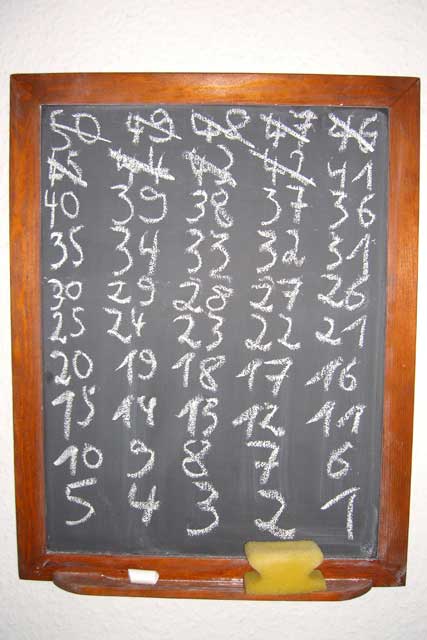 50 49 48 47 46
45 44 43 42 41
40 39 38 37 36
35 34 33 32 31
30 29 28 27 26
25 24 23 22 21
20 19 18 17 16
15 14 13 12 11
10 9 8 7 6
5 4 3 2 1